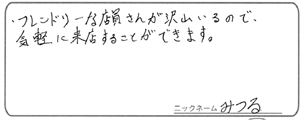 ・フレンドリーな店員さんが沢山いるので、
気軽に来店することができます。
ニックネーム みつる